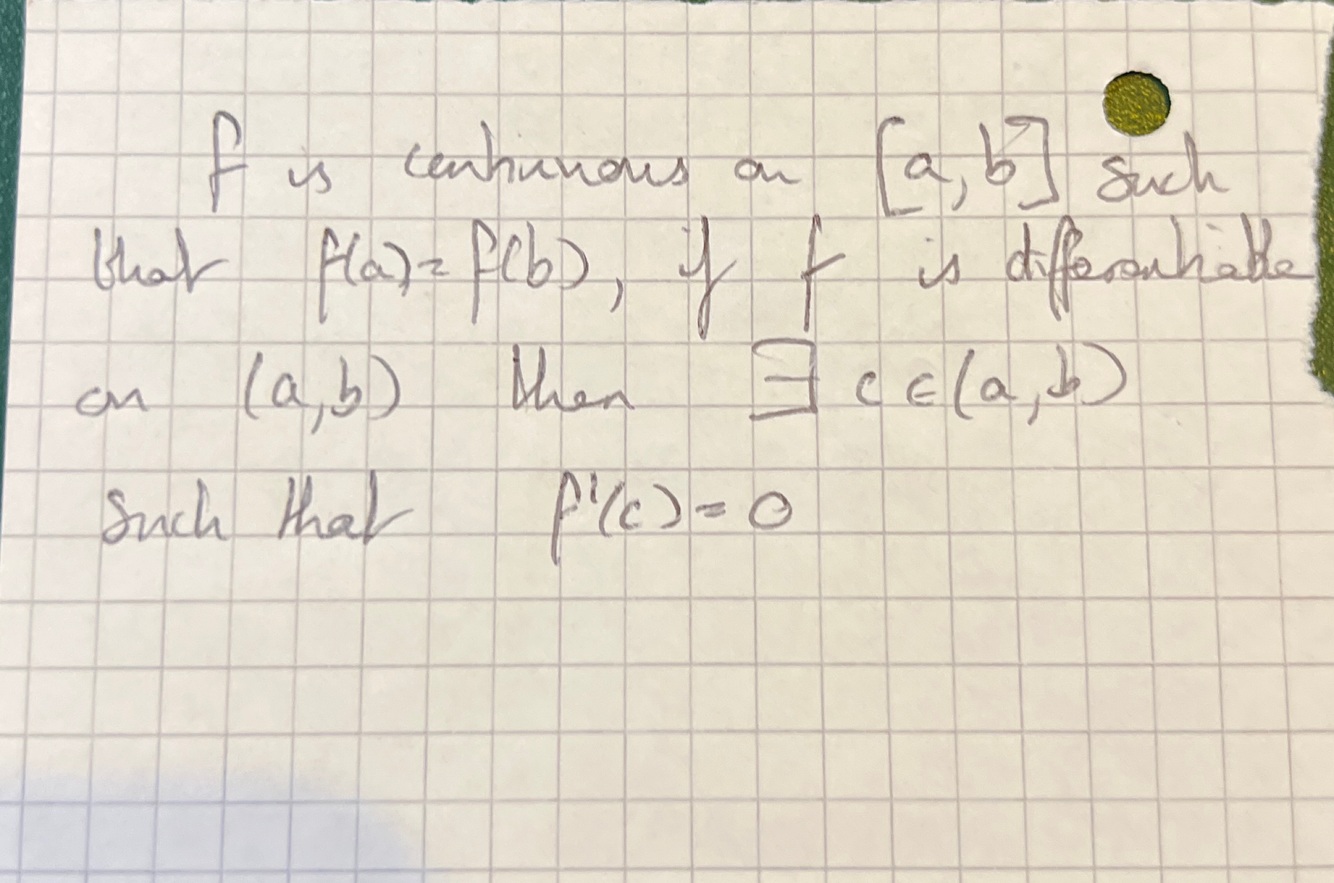 f is continuous on [a,b] such
that f(a)=f(b), if f is differentiable
on (a,b) then ∃ c∈(a,b)
such that f'(c)=0